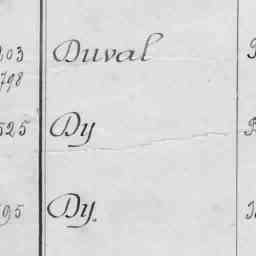 203 Duval
798
525 Dy
595 Dy.